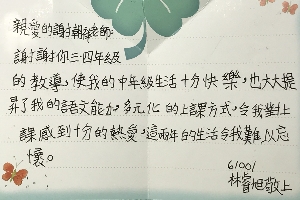 親愛的謝朝祿老師:
謝謝你三、四年級
的教導,使我的中年級生活十分快樂,也大大提
昇了我的語文能力,多元化的上課方式,令我對上
課感到十分的熱愛,這兩年的生活令我難以忘
懷。
61001
林睿旭敬上